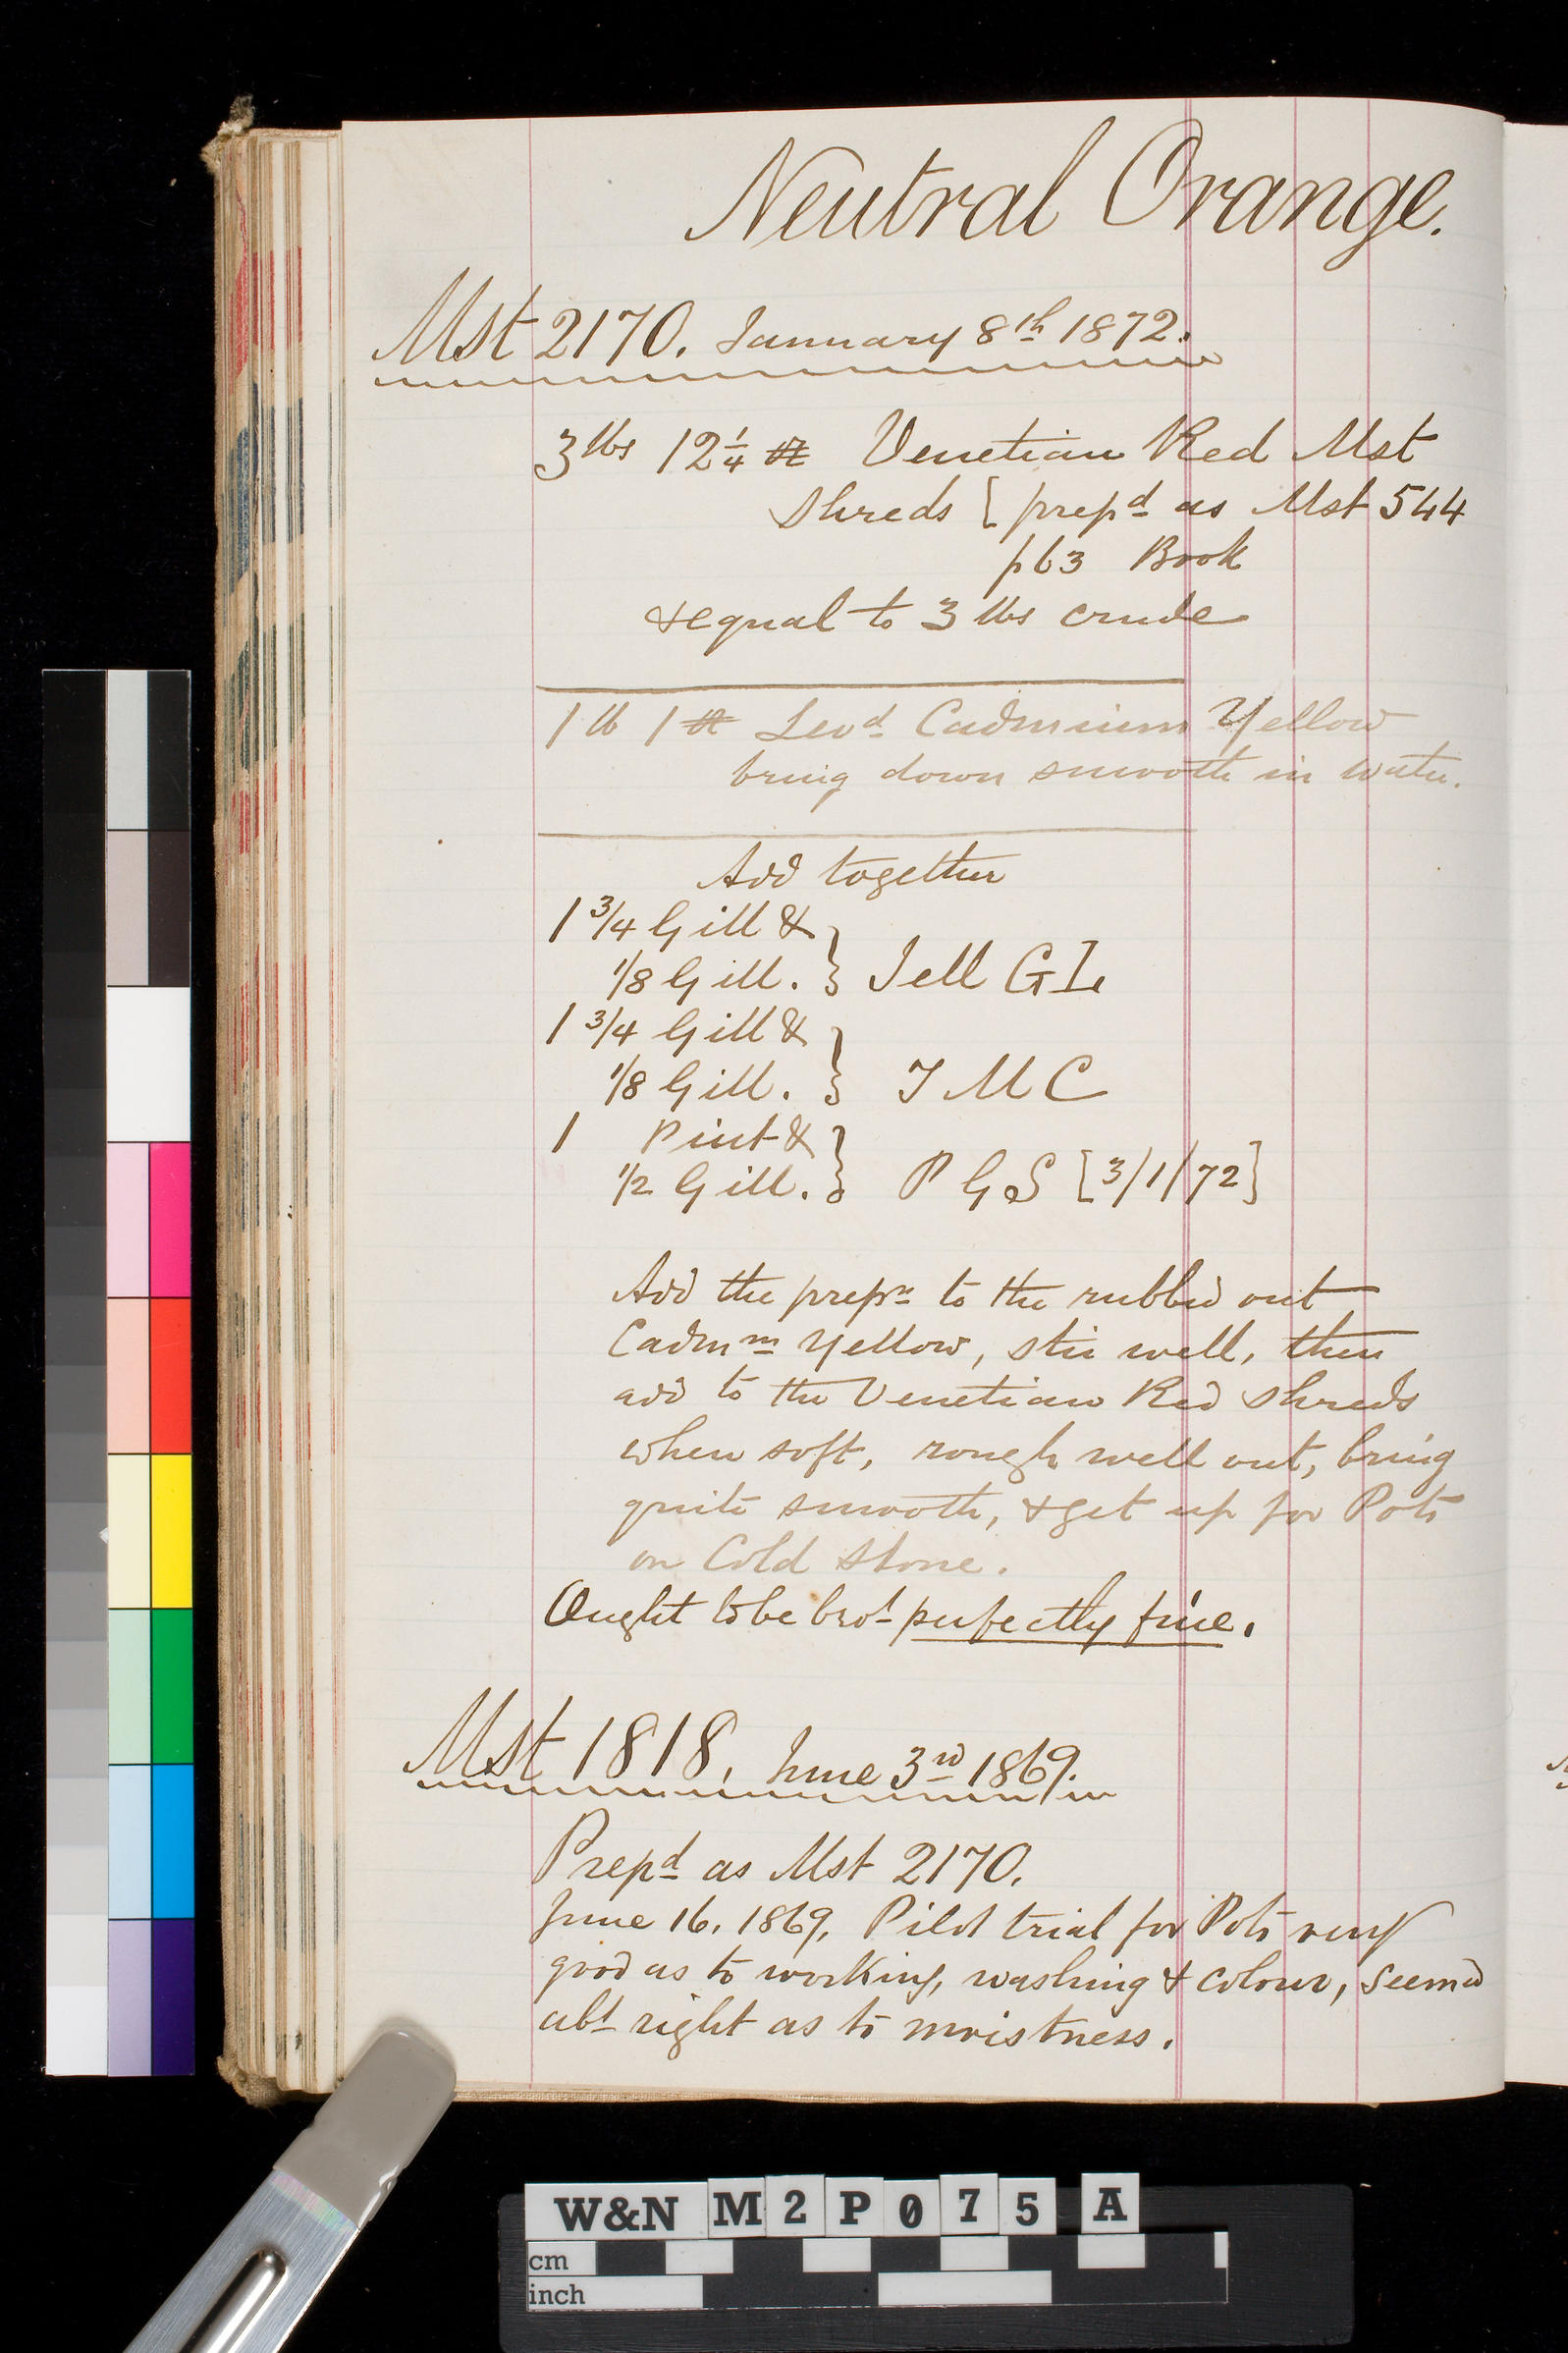 Neutral Orange.
Mst 2170. January 8th 1872.
3 lbs 12 1/4 oz Venetian Red Mst
Shreds [ prepd as Mst 544
p 63 Book
& equal to 3 lbs crude
1 lb 1 oz Levd Cadmium Yellow
bring down smooth in water.
Add together
1 3/4 Gill &
1/8 Gill. } Jell GL
1 3/4 Gill &
1/8 Gill. } T M C
1 Pint &
1/2 Gill. } P G S [3/1/72]
Add the prepn to the rubbed out
Cadmm Yellow, stir well, then
add to the Venetian Red Shreds
when soft, rough well out, bring
quite smooth, & get up for Pots
on Cold Stone.
Ought to be brot perfectly fine.
Mst 1818. June 3rd 1869.
Prepd as Mst 2170.
June 16. 1869. Pilot trial for Pots very
good as to working, washing & colour, seemed
abt right as to moistness.
W&N M2P075 A
cm
inch